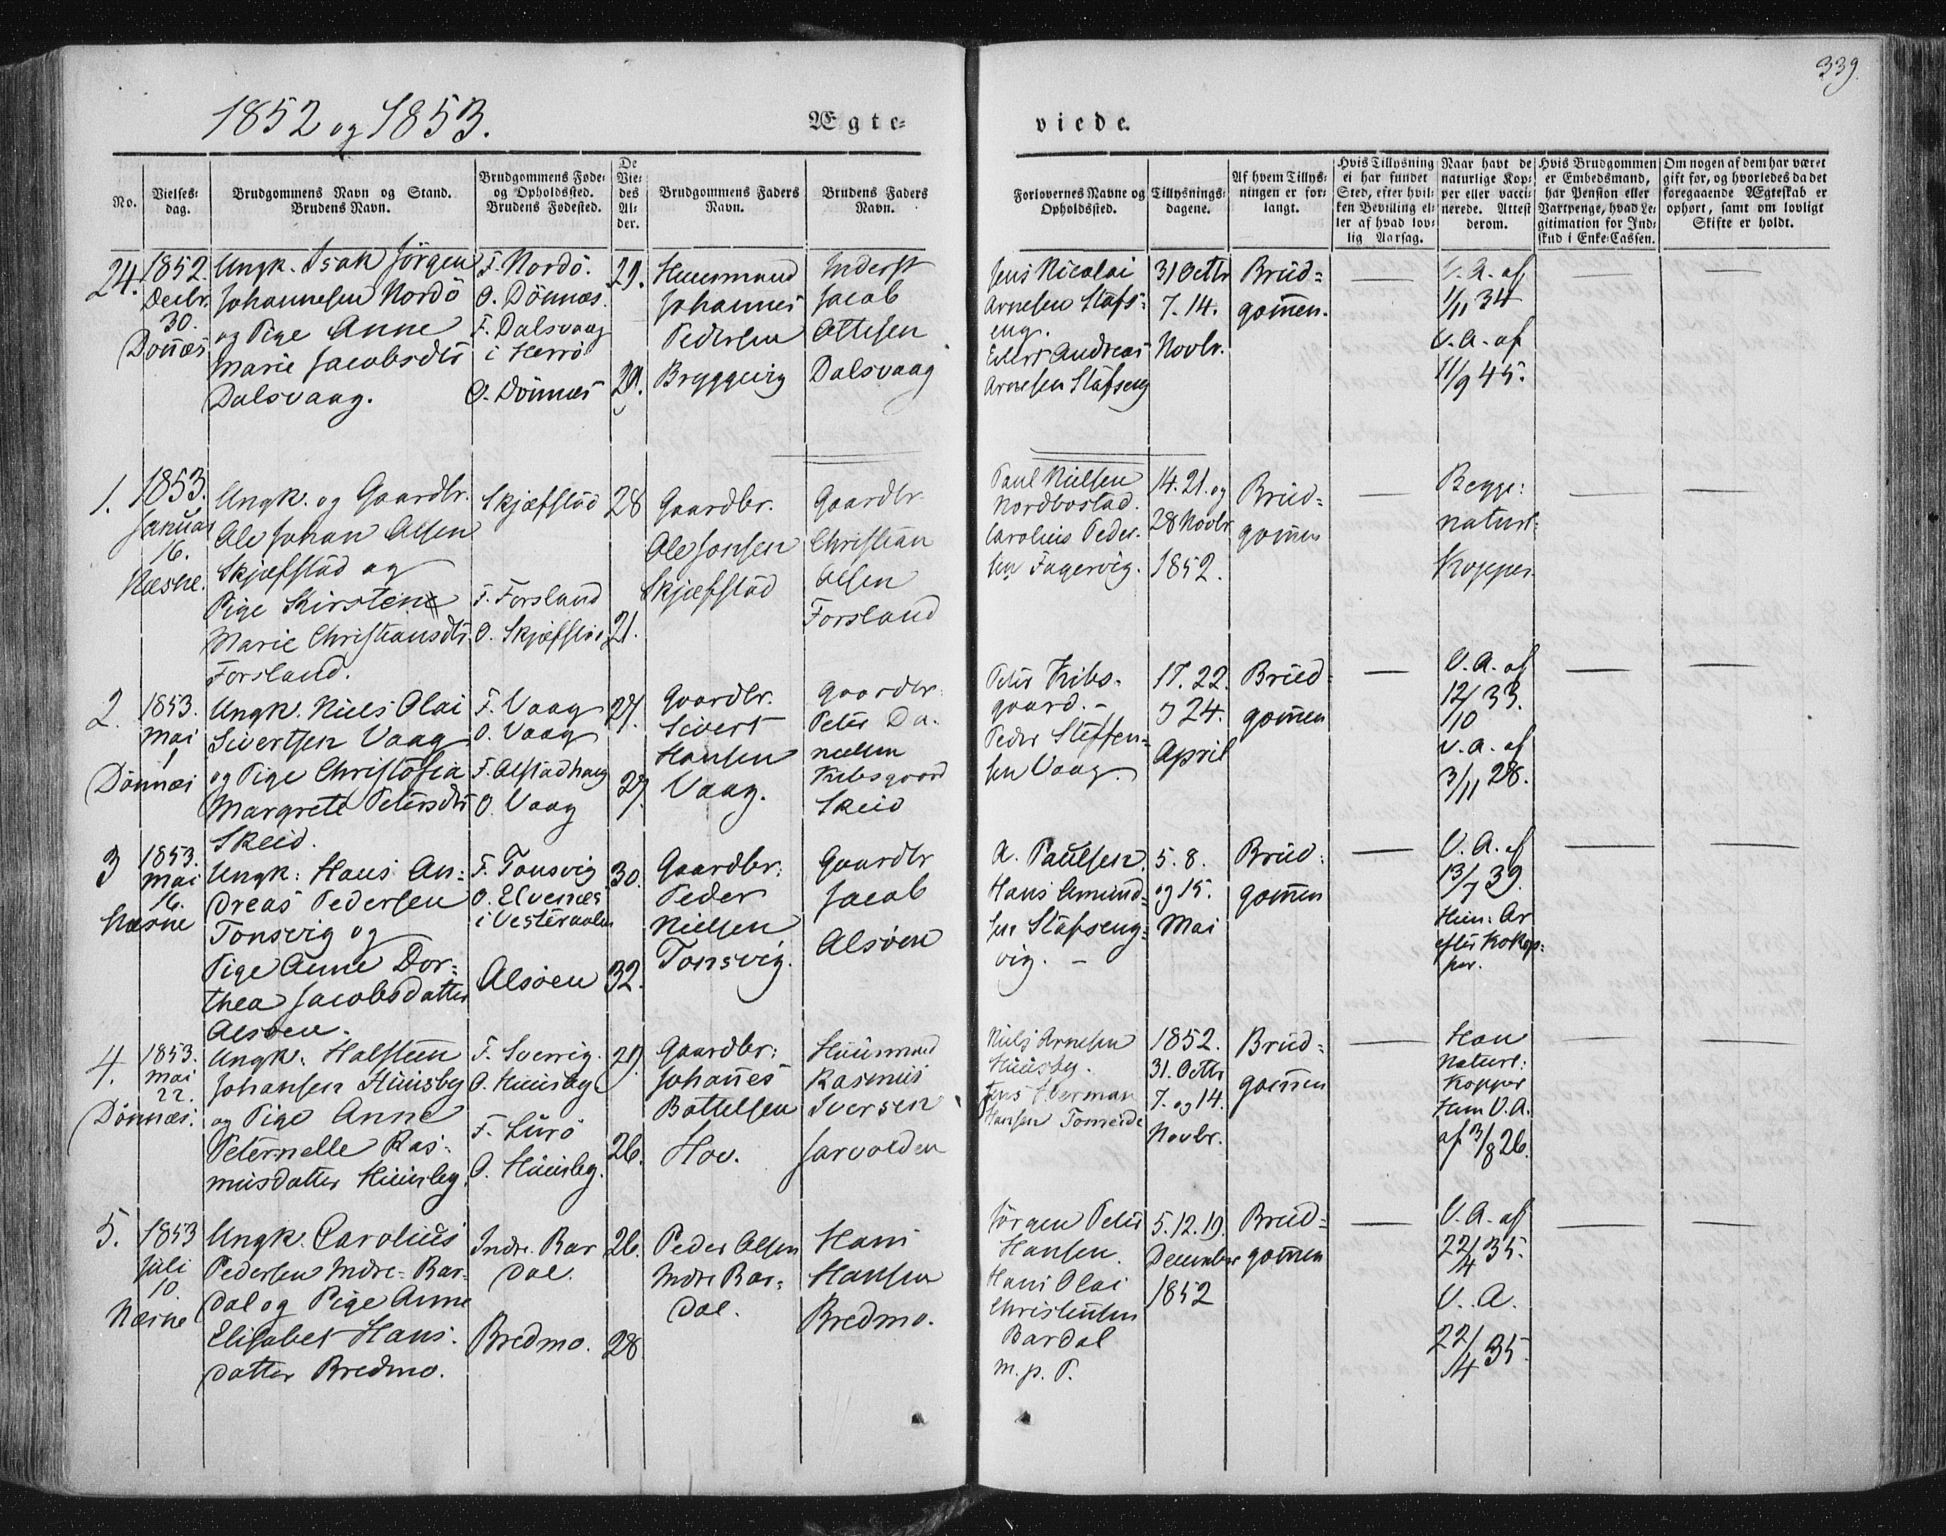 339.
1852 og 1853.
Ægte-
viede.
No.
Vielses-
dag.
Brudgommens Navn og Stand.
Brudens Navn.
Brudgommens Føde-
og Opholdssted.
Brudens Fødested.
De
Vie-
des
Al-
der.
Brudgommens Faders
Navn.
Brudens Faders
Navn.
Forlovernes Navne og
Opholdssted.
Tillysnings-
dagene.
Af hvem Tillys-
ningen er for-
langt.
Hvis Tillysning
ei har fundet
Sted, efter hvil-
ken Bevilling el-
ler af hvad lov-
lig Aarsag.
Naar havt de
naturlige Kop-
per eller vacci-
nerede. Attest
derom.
Hvis Brudgommen
er Embedsmand,
har Pension eller
Vartpenge, hvad Le-
gitimation for Ind-
skud i Enke-Cassen.
Om nogen af dem har været
gift før, og hvorledes da det
foregaaende Ægteskab er
ophørt, samt om lovligt
Skifte er holdt.
24.
1852
Decbr.
30.
Dönnæs
Ungk. Isak Jörgen
Johannesen Nordö
og Pige Anne
Marie Jacobsdtr
Dalsvaag.
F. Nordö.
O. Dönnæs.
F. Dalsvaag
i Herrö
O. Dönnæs
29.
29.
Huusmand
Johannes
Pedersen
Bryggevig
Inderst
Jacob
Ottesen
Dalsvaag
Jens Nicolai
Arnesen Stafs-
eng.
Evert Andreas
Arnesen Stafseng
31 Octbr
7. 14.
Novbr.
Brud-
gomen.
V. A. af
1/11 34
V. A. af
11/9 45.
1.
1853.
Januar
16.
Næsne.
Ungk. og Gaardbr.
Ole Johan Olsen
Skjæfstad og
Pige Kirsten
Marie Christiansdtr
Forsland.
Skjæfstad
F. Forsland
O. Skjæfstad
28
21.
Gaardbr.
Ole Jonsen
Skjæfstad
Gaardbr
Christian
Olsen
Forsland
Paul Nielsen
Nordbostad.
Carolius Peder-
sen Fagervig.
14. 21. og
28 Novbr
1852.
Brud-
gomen
Begge:
naturl:
Kopper
2.
1853.
Mai
1
Dönnæs
Ungk. Niels Olai
Sivertsen Vaag
og Pige Christofia
Margrete Petersdtr
Skeid.
F. Vaag
O. Vaag
F. Alstadhaug
O. Vaag
27.
27.
Gaardbr.
Sivert
Hansen
Vaag.
Gaardbr.
Peter Da-
nielsen
Kibsgaard
Skeid
Peter Kibs-
gaard. -
Peder Steffen-
sen Vaag.
17. 22.
og 24.
April
Brud-
gomen
V. A. af
12/10 33.
V. A. af
3/11 28.
3
1853.
Mai
16.
Næsne
Ungk: Hans An-
dreas Pedersen
Tonsvig og
Pige Anne Dor-
thea Jacobsdatter
Alsöen.
F. Tonsvig
O. Elvenæs
i Vesteraalen
Alsöen
30.
32.
Gaardbr:
Peder
Nielsen
Tonsvig.
Gaardbr
Jacob
Alsöen
A. Paulsen.
Hans Amund-
sen Stafseng-
vig. -
5. 8.
og 15.
Mai
Brud-
gomen
V. A. af
13/7 39.
Hun: Ar
efter Kokop-
per.
4.
1853.
Mai
22.
Dönnæs.
Ungk: Halsteen
Johansen Huusby
og Pige Anne
Peternelle Ras-
musdatter Huusby.
F. Sverrig.
O. Huusby
F. Lurö
O. Huusby.
29.
26.
Gaardbr:
Johanes
Bottelsen
Hov.
Huusmand
Rasmus
Iversen
Sarvolden
Niels Arnesen
Huusby.
Jens Herman
Hansen Tomeide
1852.
31. Octbr
7. og 14.
Novbr.
Brud-
gomen
Han
Naturl:
Kopper
Hun V. A.
af 3/8 26.
5.
1853
Juli
10.
Næsne
Ungk. Carolius
Pedersen Indre-Bar-
dal og Pige Anne
Elisabet Hans-
datter Bredmo.
Indre. Bar
dal.
Bredmo.
26.
28
Peder Olsen
Indre Bar-
dal.
Hans
Hansen
Bredmo.
Jörgen Peter
Hansen.
Hans Olai
Christensen
Bardal
m. p. P.
5. 12. 19.
December
1852
Brud-
gomen
V. A. af
22/4 35.
V. A.
22/4 35.